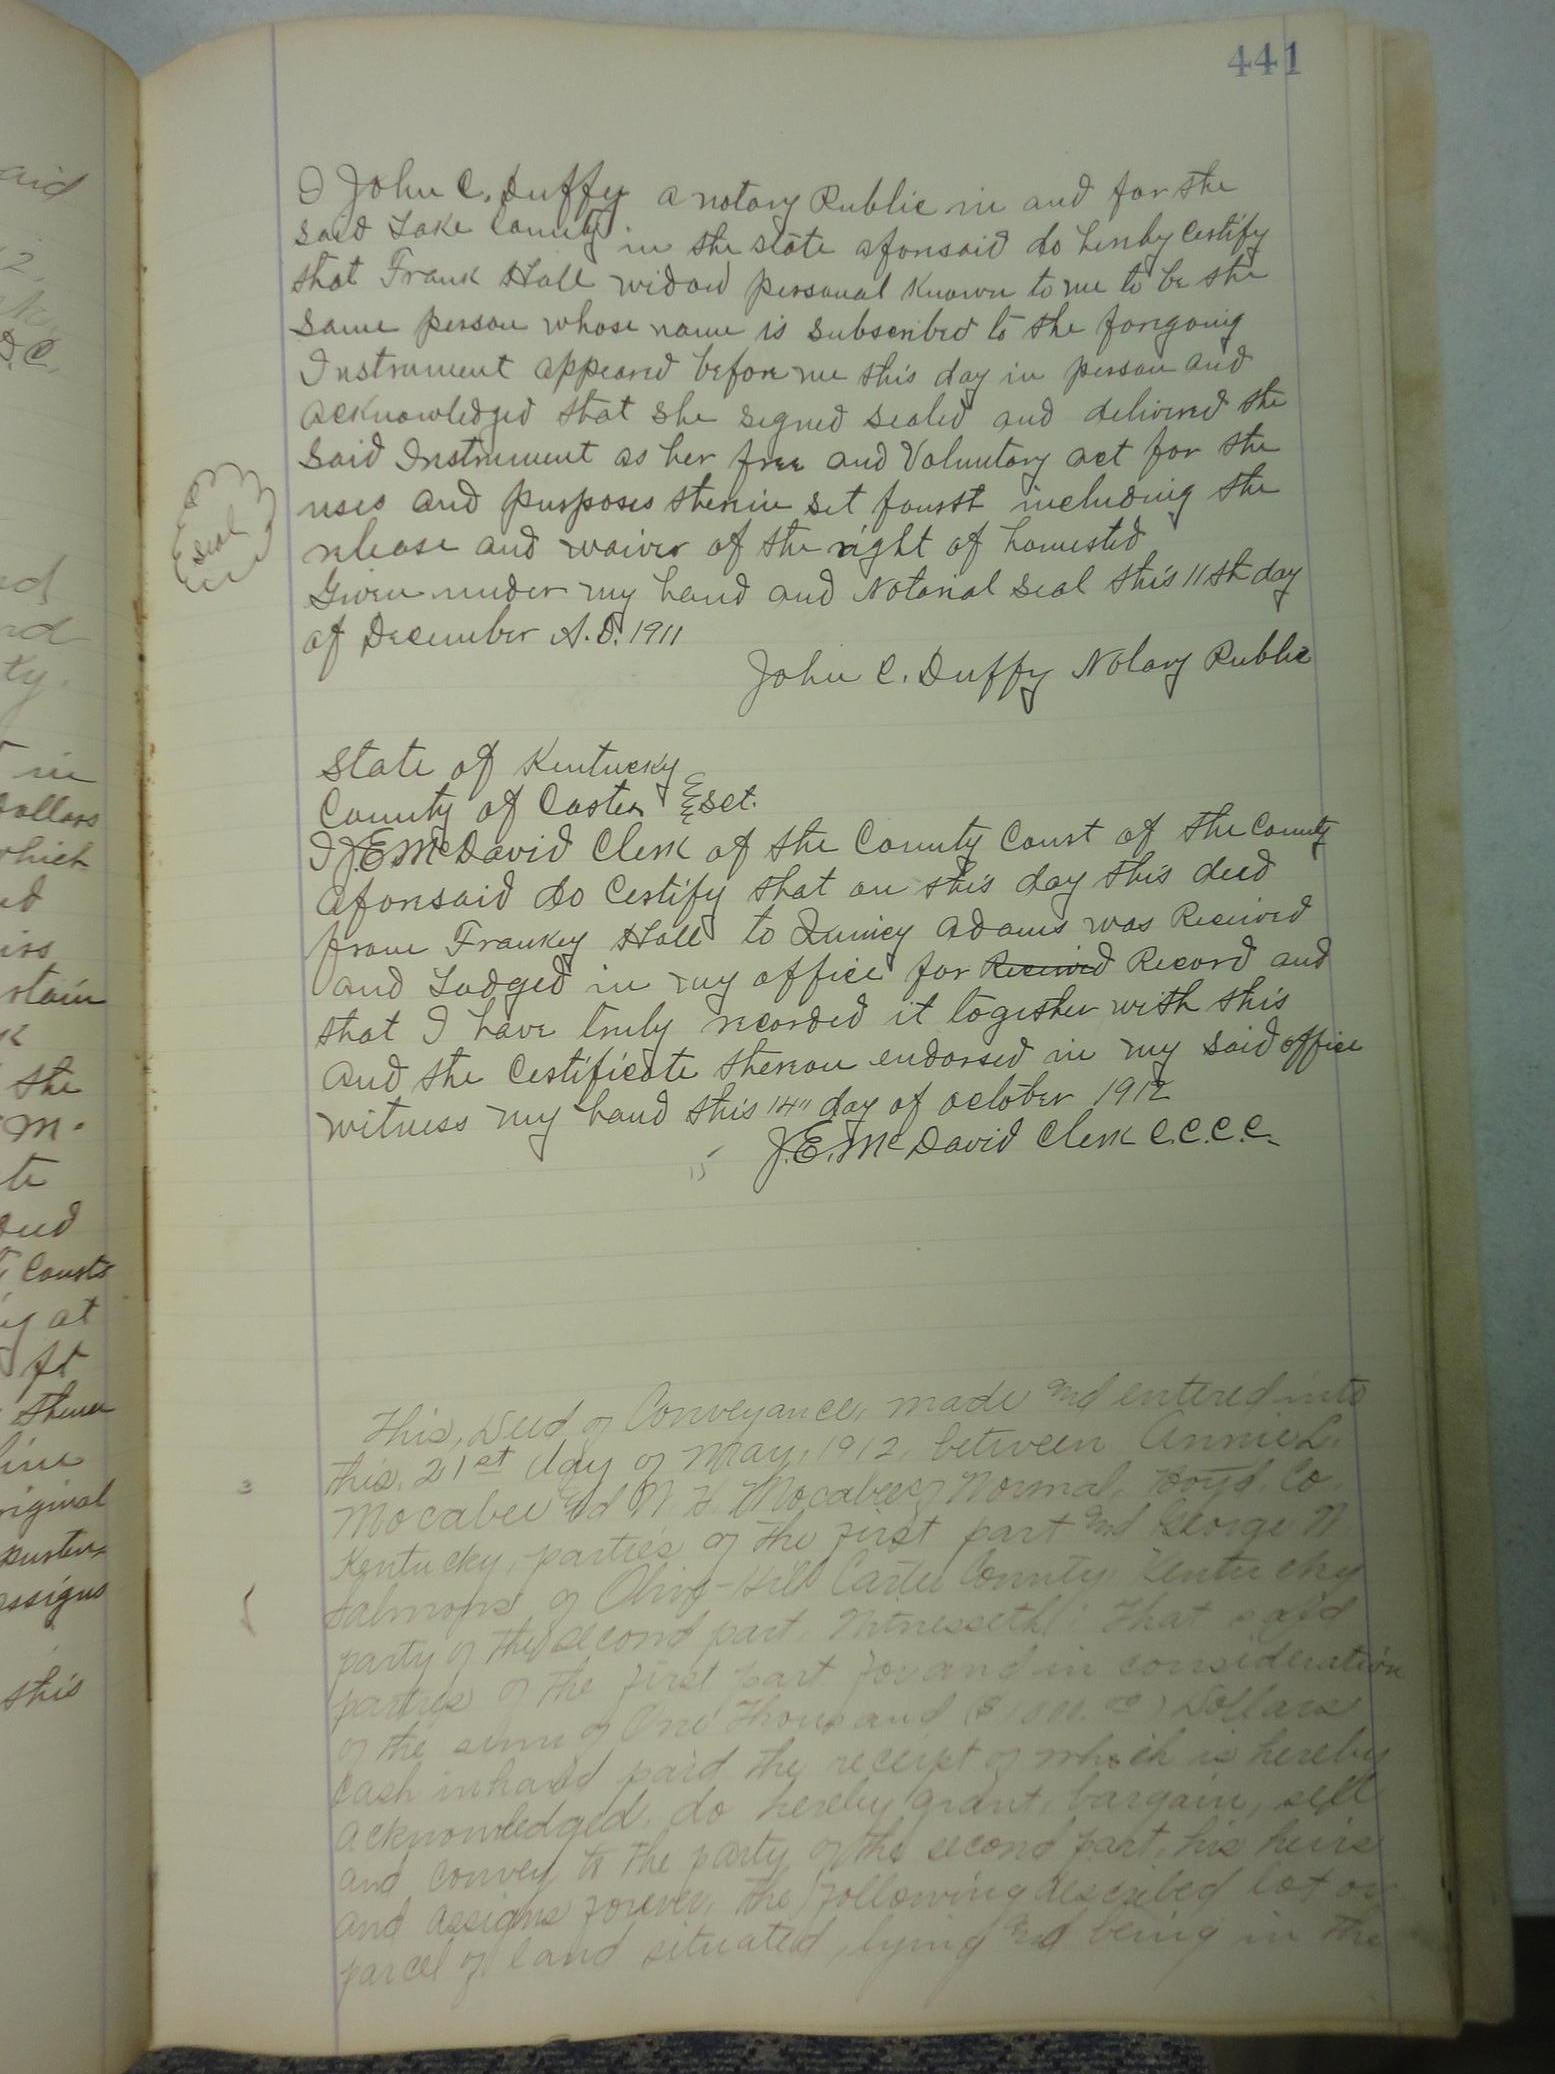 441
I John C. Duffy a notary Public in and for the
said Lake County in the state aforesaid do hereby Certify
that Frank Hall widow personal Known to me to be the
same person whose name is subscribed to the foregoing
Instrument appeared before me this day in person and
acknowledged that she signed sealed and delivered the
said Instrument as her free and Voluntary act for the
uses and purposes therein set fourth including the
release and waiver of the right of homested
Given under my hand and Notarial seal this 11th day
of December A.D. 1911
John C. Duffy Notary Public
seal
State of Kentucky
County of Carter sct.
I J.E. McDavid Clerk of the County Court of the County
aforesaid do Certify that on this day this deed
from Frankey Hall to Quincy Adams was Received
and Lodged in my office for Received Record and
that I have truly recorded it together with this
and the Certificate thereon endorsed in my said office
witness my hand this 14" day of october 1912
J.E. McDavid Clerk C.C.C.C.
15
This, Deed of Conveyance, made and entered into
this, 21st day of May, 1912, between Annie L.
Mocabee and N. H. Mocabee of Normal, Boyd, Co.
Kentucky, parties of the first part and George N.
Salmons of Olive-Hill Carter County, Kentucky
party of the second part. Witnesseth: That said
parties of the first part for and in consideration
of the sum of One Thousand ($1000.00) Dollars
Cash in hand paid the receipt of which is hereby
acknowledged, do hereby grant, bargain, sell
and convey to the party of the second part, his heirs
and assigns forever, the following described lot or
parcel of land situated, lying and being in the
aid
2,
D.C.
ed
nd
ty.
in
Dollars
which
nd
irs
rtain
k
the
M.
te
Deed
Courts
y at
ft
thence
line
original
purten-
assigns
this